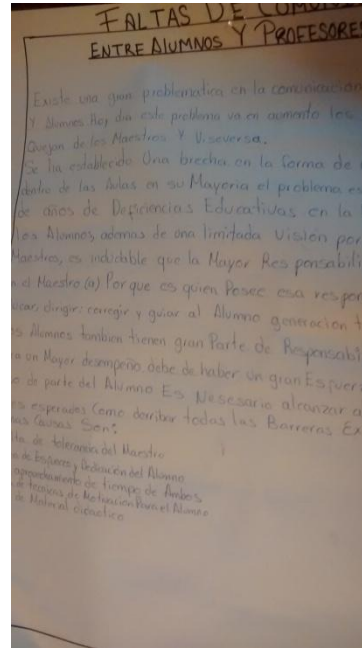 FALTAS DE COMU
ENTRE ALUMNOS Y PROFESORE
Existe una gran problematica en la comunicacion
Y Alumnos. Hoy dia este problema va en aumento los
Quejan de los Maestros Y Viseversa.
Se ha establecido Una brecha en la forma de
dentro de las Aulas en su Mayoria el problema es
de años de Deficiencias Educativas en la
los Alumnos, ademas de una limitada Visión por
Maestros, es indudable que la Mayor Responsabili
n el Maestro (a) Porque es quien Posee esa respon
ucar, dirigir, corregir y guiar al Alumno generacion t
s Alumnos tambien tienen gran Parte de Responsabi
a un Mayor desempeño debe de haber un gran Esfuer
o de parte del Alumno Es Nesesario alcanzar
s esperados Como derribar todas las Barreras Ex
as Causas Son:
lta de tolerancia del Maestro
a de Esfuerzo y Dedicacion del Alumno
aprovechamiento de tiempo de Ambos
de tecnicas de Motivacion Para el Alumno
de Material didactico